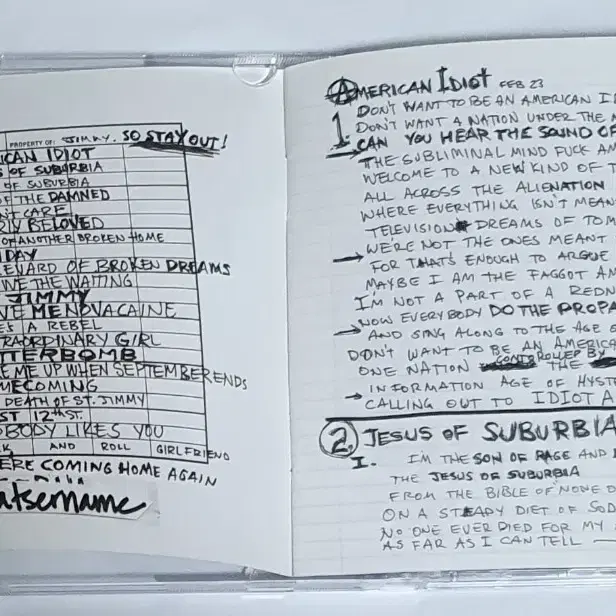 PROPERTY OF: JIMMY. SO STAY OUT!
ICAN IDIOT
S OF SUBURBIA
OF SUBURBIA
OF THE DAMNED
N'T CARE
RLY BELOVED
OF ANOTHER BROKEN HOME
IDAY
LEVARD OF BROKEN DREAMS
WE THE WAITING
JIMMY
VE ME NOVACAINE
E'S A REBEL
TRAORDINARY GIRL
TTERBOMB
E ME UP WHEN SEPTEMBER ENDS
MECOMING
DEATH OF ST. JIMMY
ST 12TH ST.
OBODY LIKES YOU
AND ROLL GIRLFRIEND
ERE COMING HOME AGAIN
atsername
AMERICAN IDIOT FEB 23
1. DON'T WANT TO BE AN AMERICAN I
DON'T WANT A NATION UNDER THE
CAN YOU HEAR THE SOUND OF
THE SUBLIMINAL MIND FUCK AM
WELCOME TO A NEW KIND OF T
ALL ACROSS THE ALIENATION
WHERE EVERYTHING ISN'T MEAN
TELEVISION DREAMS OF TOM
→ WE'RE NOT THE ONES MEANT
FOR THAT'S ENOUGH TO ARGUE
MAYBE I AM THE FAGGOT AM
I'M NOT A PART OF A REDN
NOW EVERYBODY DO THE PROPA
→ AND SING ALONG TO THE AGE O
DIDN'T WANT TO BE AN AMERICA
ONE NATION CONTROLLED BY THE
INFORMATION AGE OF HYST
→ CALLING OUT TO IDIOT A
2 JESUS OF SUBURBIA
I. I'M THE SON OF RAGE AND
THE JESUS OF SUBURBIA
FROM THE BIBLE OF NONE O
ON A STEADY DIET OF SOD
NO ONE EVER DIED FOR MY
AS FAR AS I CAN TELL —